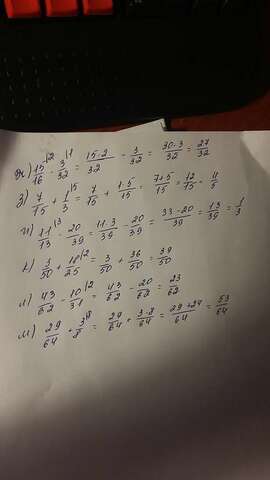 ж) 15/16 |2 - 3/32 |1 = 15·2/32 - 3/32 = 30-3/32 = 27/32
з) 7/15 + 1/3 |5 = 7/15 + 1·5/15 = 7+5/15 = 12/15
и) 11/13 |3 - 20/39 = 11·3/39 - 20/39 = 33-20/39 = 13/39 = 1/3
к) 3/50 + 18/25 |2 = 3/50 + 36/50 = 39/50
л) 43/62 - 10/31 |2 = 43/62 - 20/62 = 23/62
м) 29/64 + 3/8 |8 = 29/64 + 3·8/64 = 29+24/64 = 53/64